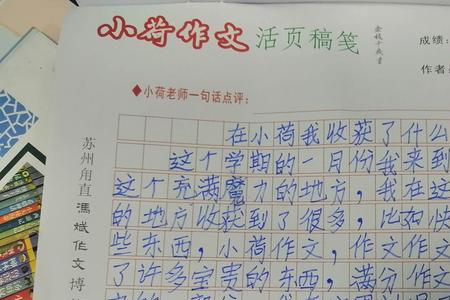 小荷作文 活页稿笺
成绩:
作者:
◆小荷老师一句话点评:
苏州甪直 馮斌作文博
在小荷我收获了什么
这个学期的一月份我来到
这个充满魔力的地方,我在这
的地方收获到了很多,比如快
些东西,小荷作文,作文作文
了许多宝贵的东西,满分作文